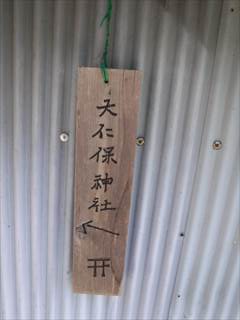 天仁保神社